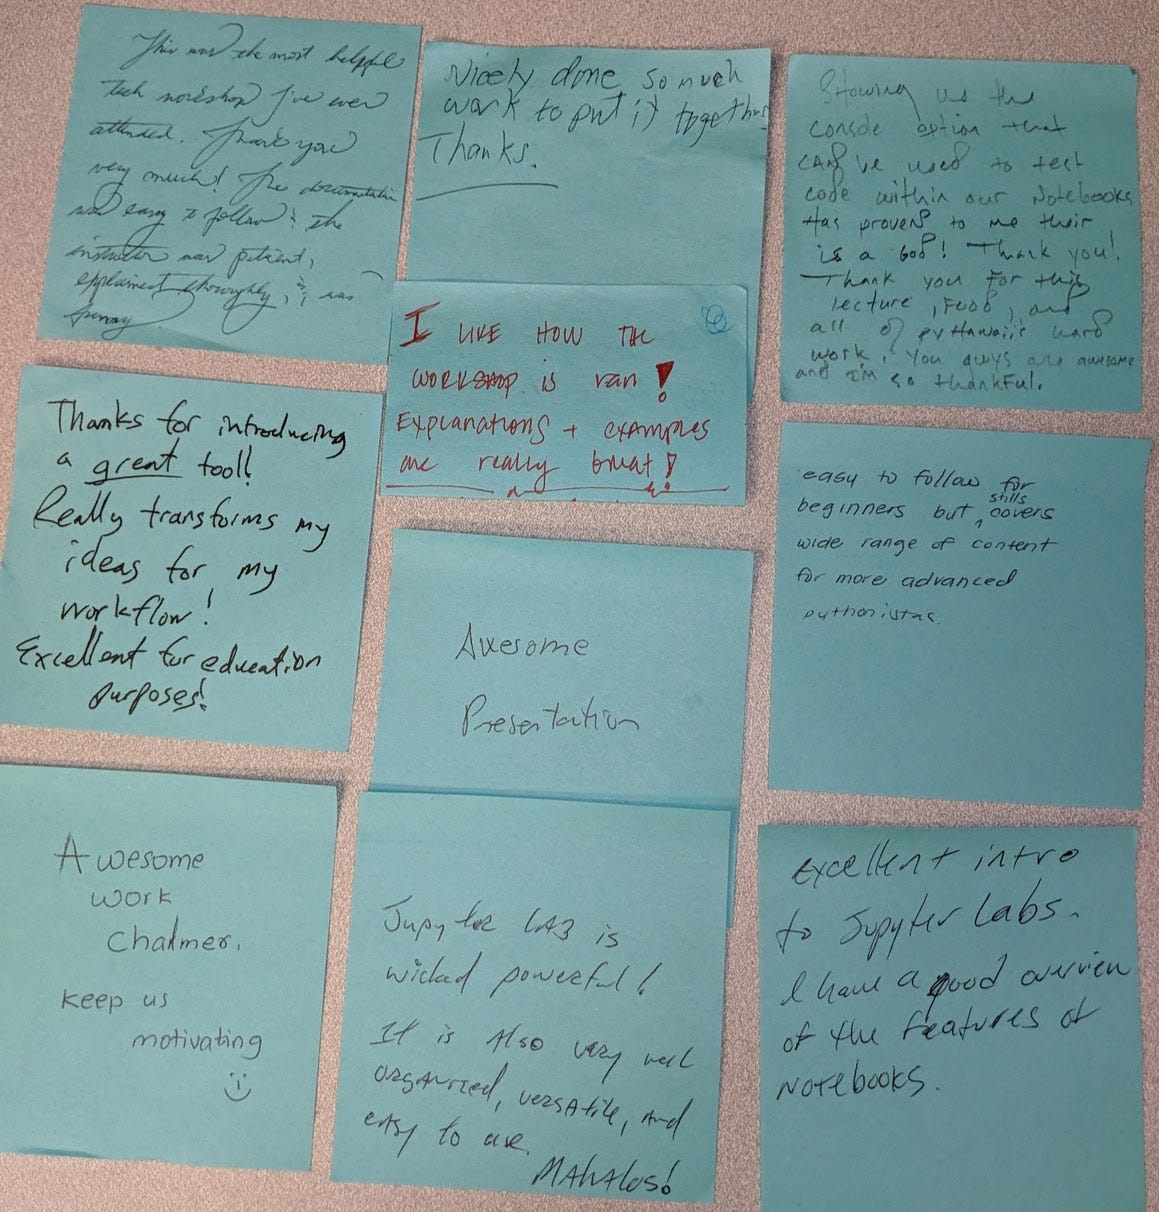 This was the most helpful
tech workshop I've ever
attended. Thank you
very much! The documentation
was easy to follow & the
instructor was patient,
explained thoroughly, & was
funny
Nicely done so much
work to put it together.
Thanks.
Showing us the
console option that
can be used to test
code within our Notebooks
Has proven to me their
is a God! Thank you!
Thank you for this
lecture, Food, and
all of pyHawaii's hard
work, you guys are awesome
and I'm so thankful.
I LIKE HOW THE
WORKSHOP is ran!
Explanations + examples
are really great!
Thanks for introducing
a great tool!
Really transforms my
ideas for my
workflow!
Excellent for education
purposes!
easy to follow for
beginners but stills covers
wide range of content
for more advanced
pythonistas.
Awesome
Presentation
Awesome
work
Chalmer,
keep us
motivating
Jupyter LAB is
wicked powerful!
It is Also very well
organized, versatile, and
easy to use.
MAHALOS!
Excellent intro
to Jupyter Labs.
I have a good overview
of the features of
Notebooks.